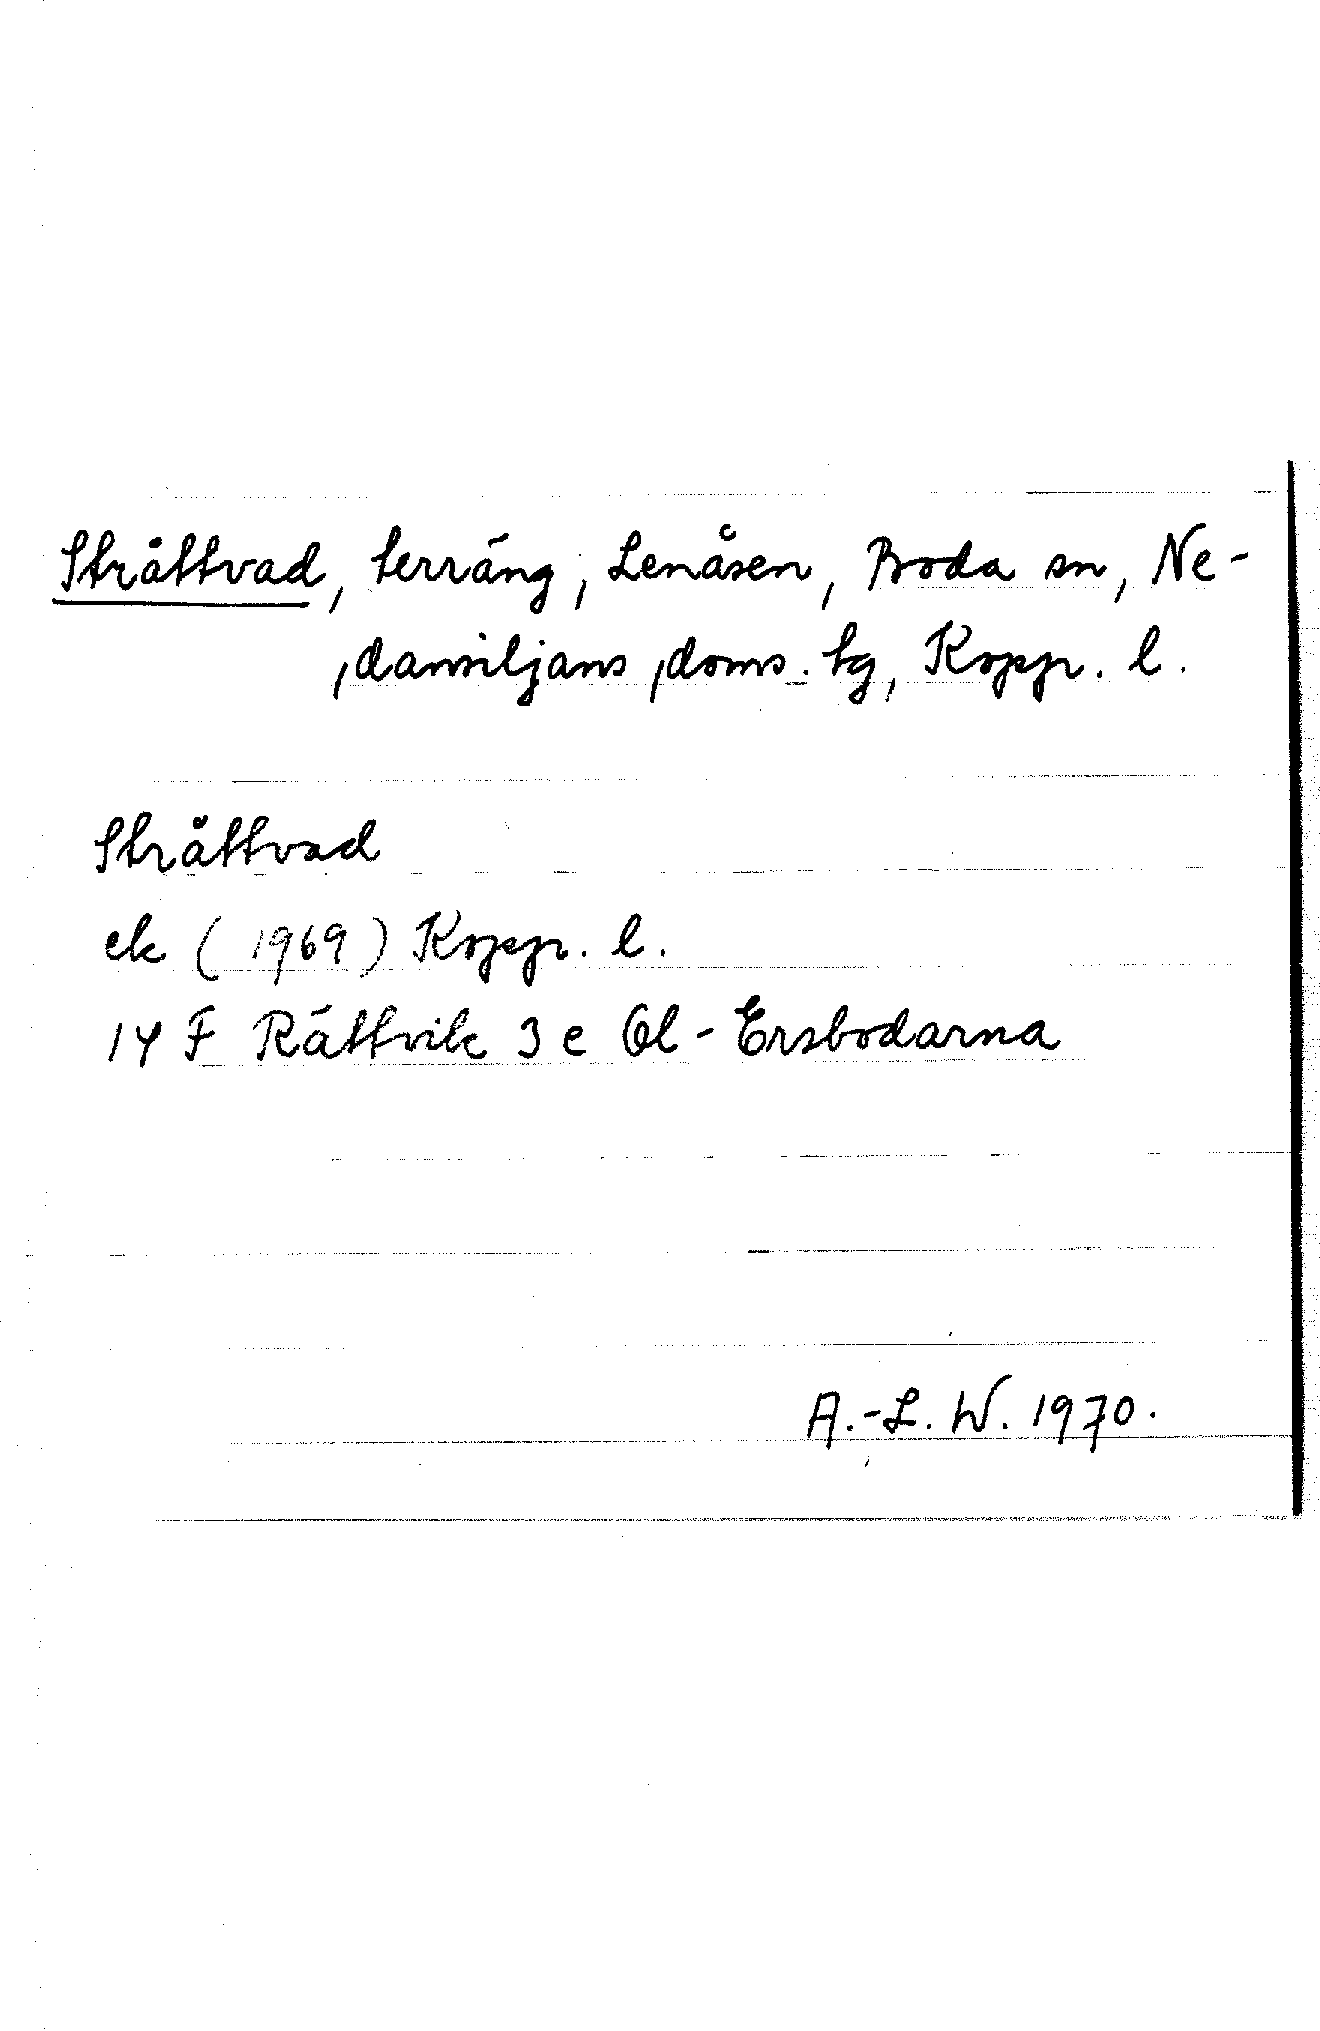 Ståttvad, terräng, Lenåsen, Boda sn, Ne-
dansiljans doms. tg, Kopp. l.
Ståttvad
ek (1969) Kopp. l.
14 F Rättvik 3 e Ol-Ersbodarna
A.-L. W. 1970.